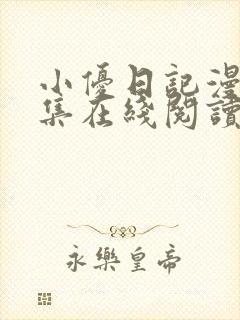 小優日記漫
集在綫閱讀
永樂皇帝